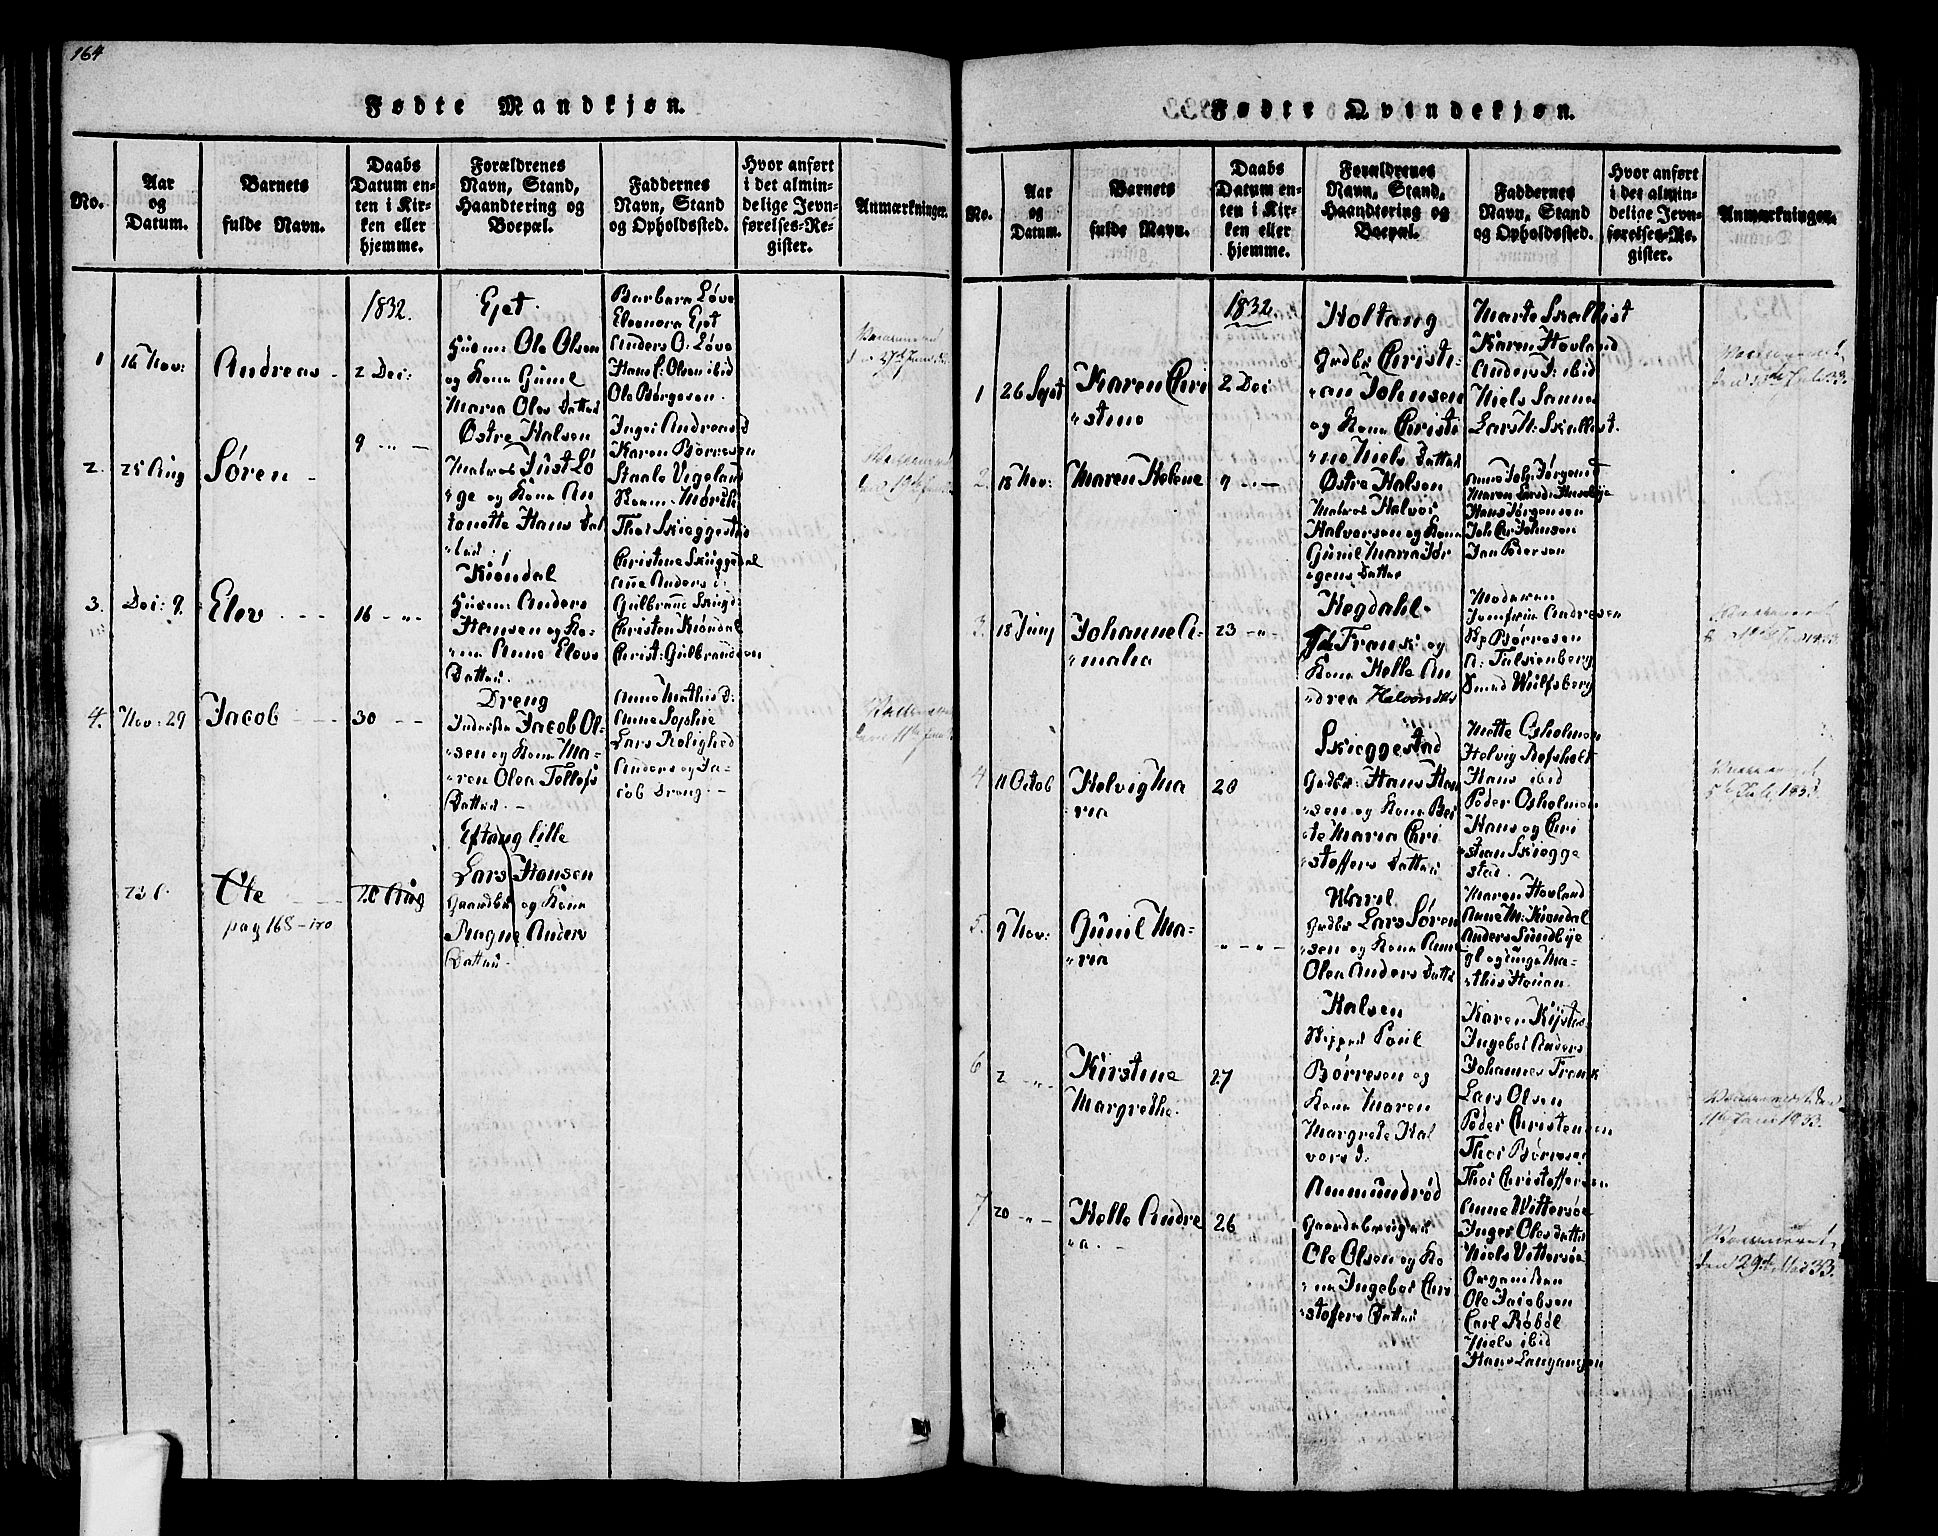 164
Fødte Mandkjøn.
No.
Aar
og
Datum.
Barnets
fulde Navn.
Daabs
Datum en-
ten i Kir-
ken eller
hjemme.
Forældrenes
Navn, Stand,
Haandtering og
Boepæl.
Faddernes
Navn, Stand
og Opholdssted.
Hvor anført
i det almin-
delige Jevn-
førelses-Re-
gister.
Anmærkninger.
1
16 Nov:
Andreas
1832.
2 Dec:
Ejet.
Huusm: Ole Olsen
og Kone Gunil
Maria Oles Datter
Barbara Løve
Eleonora Ejet
Anders O: Løve
Hans l: Olsen ibid
Ole Børgesen.
2.
25 Aug
Søren
9 -"-
Østre Halsen
Matros Just Lö
"ge og Kone An
tonette Hans Dat
Inger Andreasd
Karen Børresen
Staale Vigeland
Thor Skieggestad
3.
Dec: 9.
Elev
16 -"-
Kiøndal
Huusm: Anders
Hansen og Ko-
"ne Anne Elevs
Datter
Christine Skieggestad
Anne Anders d:
Christen Kiøndal
Christ: Gulbrandsen
4.
Nov: 29
Jacob
30 - -
Dreng
Inderster Jacob Ol-
"sen og Kone Ma-
"ren Olea Tollefs
Datter. -
Anne Mathis D:
Anne Sophie
Lars Rolighed
Anders og Ja-
cob Dreng. -
Ole
pag 168 - no
20 Aug
Eftang lille
Lars Hansen
Gaardbr og Kone
Ragne Anders
Datter.
Fødte Qvindekjøn.
No.
Aar
og
Datum.
Barnets
fulde Navn.
Daabs
Datum en-
ten i Kir-
ken eller
hjemme.
Forældrenes
Navn, Stand,
Haandtering og
Boepæl.
Faddernes
Navn, Stand
og Opholdssted.
Hvor anført
i det almin-
delige Jevn-
førelses-Re-
gister.
Anmærkninger.
1
26 Sept
Karen Chri
"stine
1832.
2 Dec
Holtang
Grdbr Christi-
"an Johnsen
og Kone Christi
"ne Niels Datter
Marte Skallist
Karen Hovland
Anders J: ibid
Niels Sanne
Lars N: Skallist.
2
18 Nov:
Maren Helene
9 -"-
Østre Halsen
Matros Halvor
Halvorsen og Kone
Gunil Maria Jør
"gens Datter
Hans Jørgensen
Joh Chr Johnsen
Jan Pedersen
3.
18 Juny
Johanne A-
"malia
23 -"-
Hegdahl
Frank og
Kone Helle An
"drea
Moderen
Jomfrue Andresen
Sr Børresen
A: Falkenberg
Smed Wulfsberg
4
11 Octob
Helvig Ma
ria
20
Skieggestad
Grdbr: Hans Han
"sen og Kone Ber
"te Maria Chri
"stoffers Datter
Mette Osholmen
Helvig Refsholt
Hans ibid
Peder Osholmen
Hans og Chri
"stian Skiegge
sted.
5.
9 Nov:
Gunil Ma-
"ria
" - " -
Waril
Grdbr Lars Søren
"sen og Kone Anne
Olea Anders Datter
Maren Hovland
Anne M: Kiøndal
Anders Sundbye
gl og unge Ma-
"this Hauan.
6
2 -"-
Kirstine
Margrethe.
27
Halsen
Skipper Poul
Børresen og
Kone Maren
Margrete Hal
vors d:
Ingebor Anders
Johannes Frank
Lars Olsen
Peder Christensen
Thor Børresen
Thor Christoffersen
7
20 -"-
Helle Andre
"a. -
26
Ammundrød
Gaardebruger
Ole Olsen og Ko
"ne Ingebor Chri
"stoffers Datter
Anne Wittersøe
Inger Oles datter
Niels Vittersøe
Organisten
Ole Jacobsen
Carl Røbøl
Niels ibid
Hans Langangen